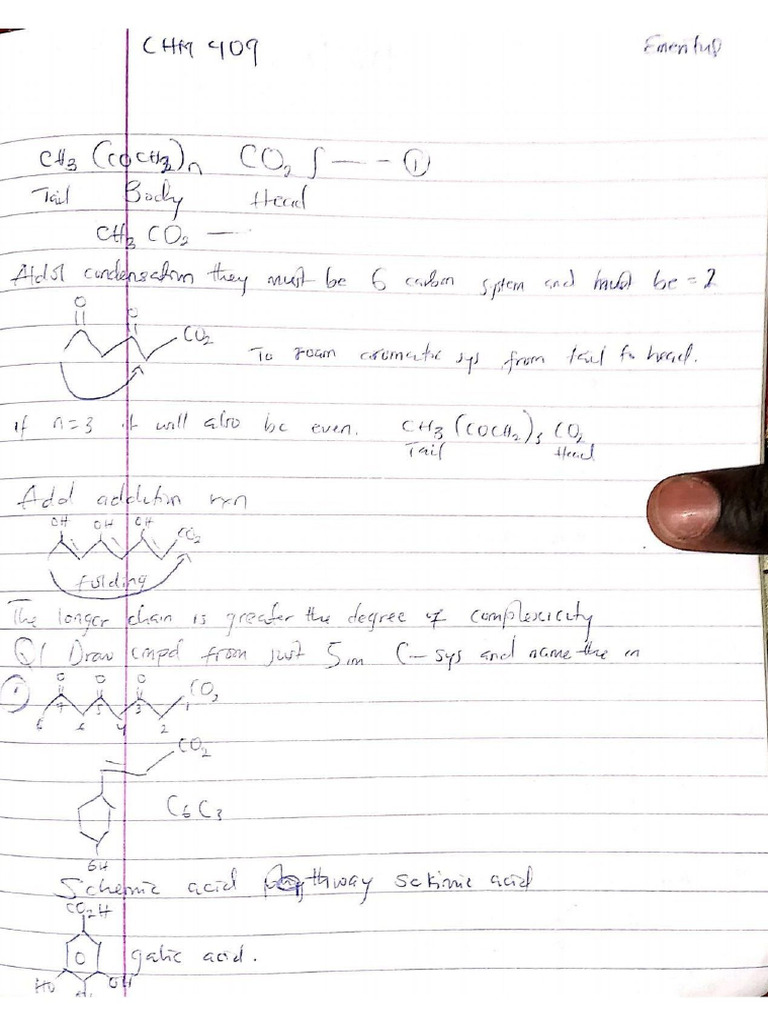 CHM 409
Emeritus
CH3 (COCH2)n CO2 ∫ — - - ①
Tail Body Head
CH3 CO2 —
Aldol condensation they must be 6 carbon system and must be = 2
O O
CO2
To foam aromatic sys from tail to head.
if n=3 it will also be even. CH3 (COCH2)3 CO2
Tail Head
Add addition rxn
OH OH OH CO2
folding
The longer chain is greater the degree of complexicity
Q1 Draw cmpd from just 5 C-sys and name the
① O O O CO2
8 7 6 5 4 3 2 1
CO2
C6C3
OH
acid pathway sckimic acid
CO2H
galic acid.
HO OH